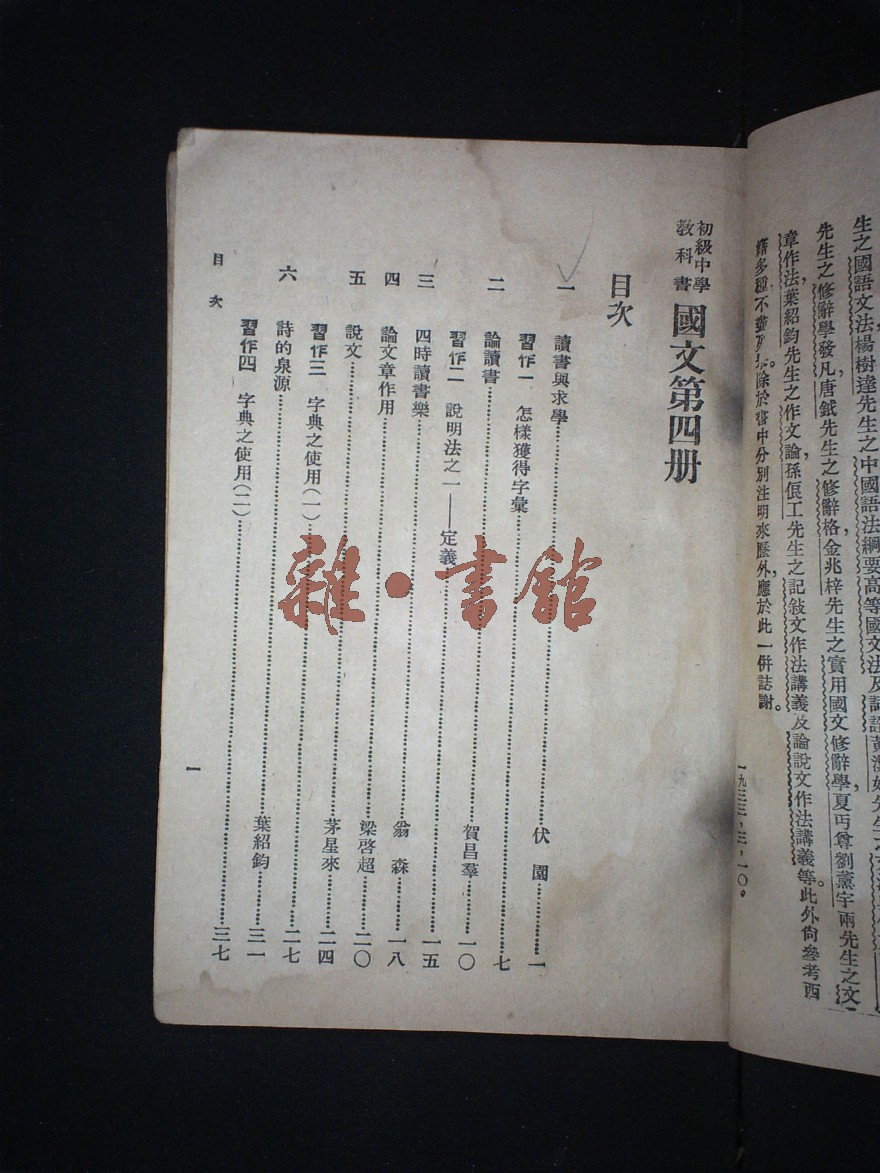 生之國語文法，楊樹達先生之中國語法綱要高等國文法及詞詮，黃潔如先生之文
先生之修辭學發凡，唐鉞先生之修辭格，金兆梓先生之實用國文修辭學，夏丏尊劉薰宇兩先生之文
章作法，葉紹鈞先生之作文論，孫俍工先生之記敍文作法講義及論說文作法講義等。此外尙參考西
籍多種不除於書中分別注明來歷外，應於此一併誌謝。
一九三三，三，一〇。
初級中學
教科書
國文第四册
目次
一 讀書與求學……伏園……一
習作一 怎樣獲得字彙……七
二 論讀書……賀昌羣……一〇
習作二 說明法之一——定義……一五
三 四時讀書樂……翁森……一八
四 論文章作用……梁啓超……二〇
五 說文……茅星來……二四
習作三 字典之使用(一)……二七
六 詩的泉源……葉紹鈞……三一
習作四 字典之使用(二)……三七
目次
一
雜·書館